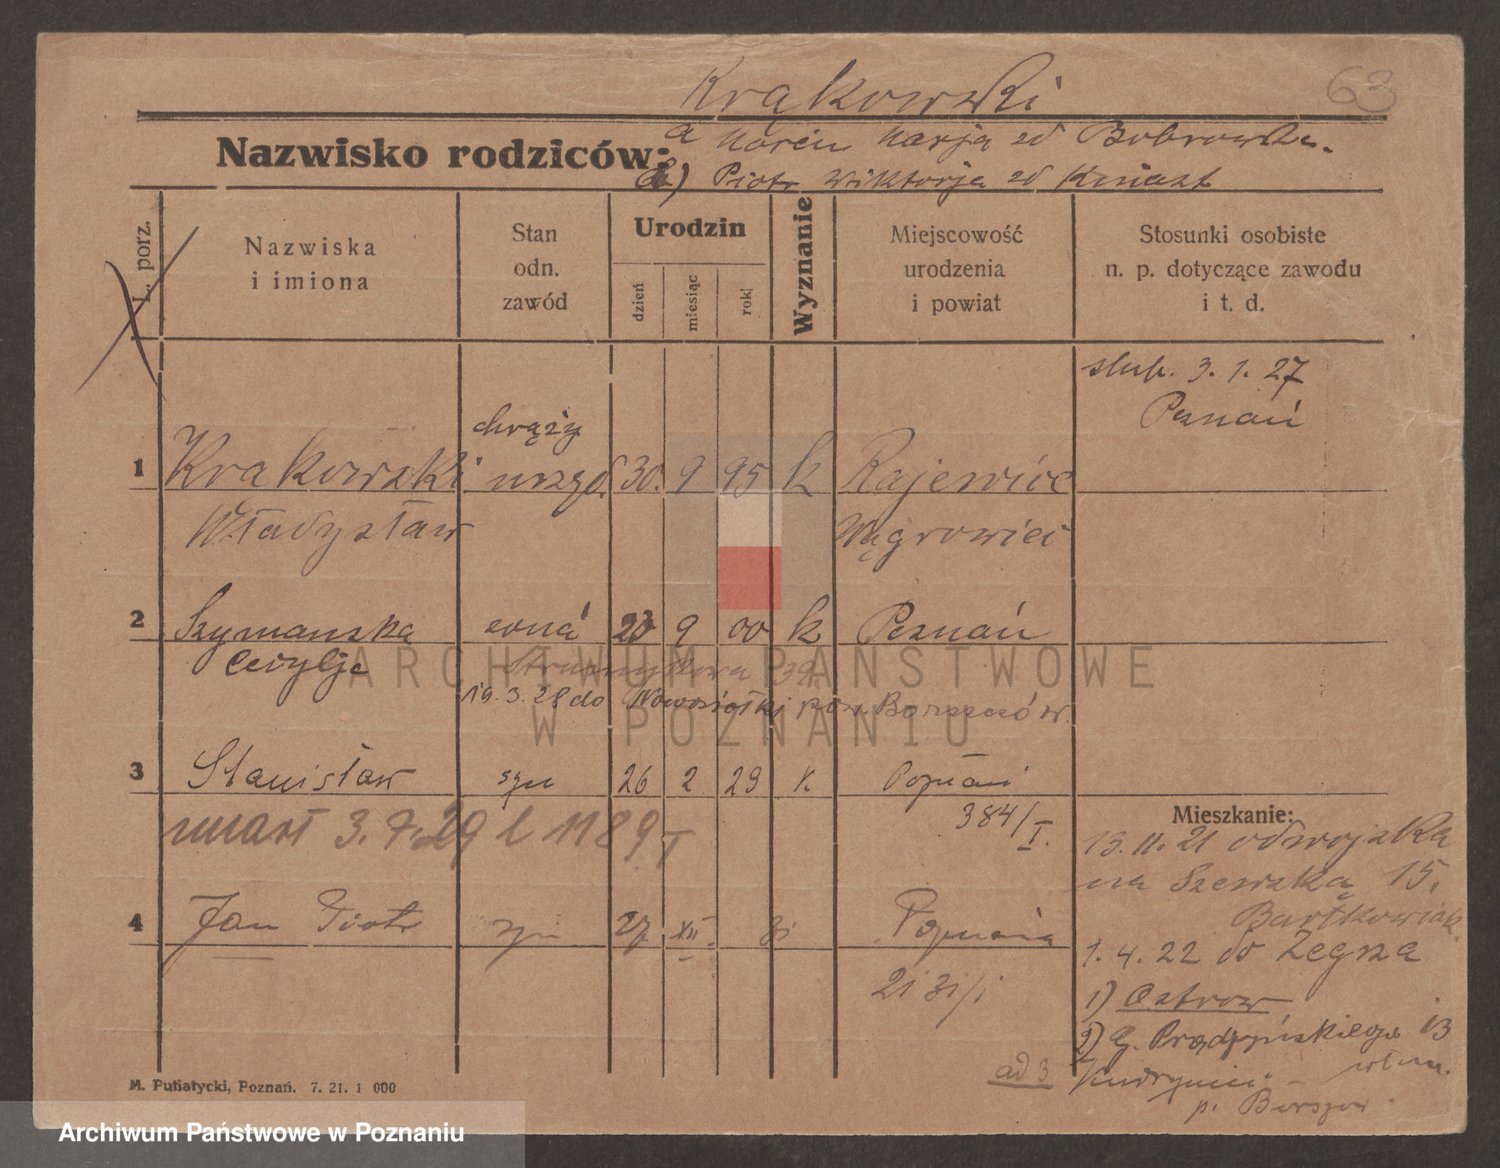 63
Krąkowski
Nazwisko rodziców:
a Marcin Marja zd Bobrowska.
b) Piotr Wiktorja zd
L. porz.
Nazwiska
i imiona
Stan
odn.
zawód
Urodzin
dzień
miesiąc
rok
Wyznanie
Miejscowość
urodzenia
i powiat
Stosunki osobiste
n. p. dotyczące zawodu
i t. d.
ślub. 3. 1. 27
Poznań
chrąży
1 Krakowski 30. 9 95 k
Władysław Wągrowiec
2 Szymanska żona 9 00 k Poznań
Cecylja
Strumykowa 39.
19. 3. 28 do pow Borszczów.
3 Stanisław syn 26 2 29 k. Poznań
384/I.
zmarł 3. 7. 29 l 1189 I
4 Jan Piotr syn 27 XII. 31 Poznania
2131/I
Mieszkanie:
13. 11. 21 od wojska
na Szewską 15.
Bartkowiak.
1. 4. 22 do Zegrza
1) Ostrow
2) G. Prądzyńskiego 13
wł. m.
ad 3
p. Borszow
M. Putiatycki, Poznań. 7. 21. 1 000
ARCHIWUM PAŃSTWOWE
W POZNANIU
Archiwum Państwowe w Poznaniu